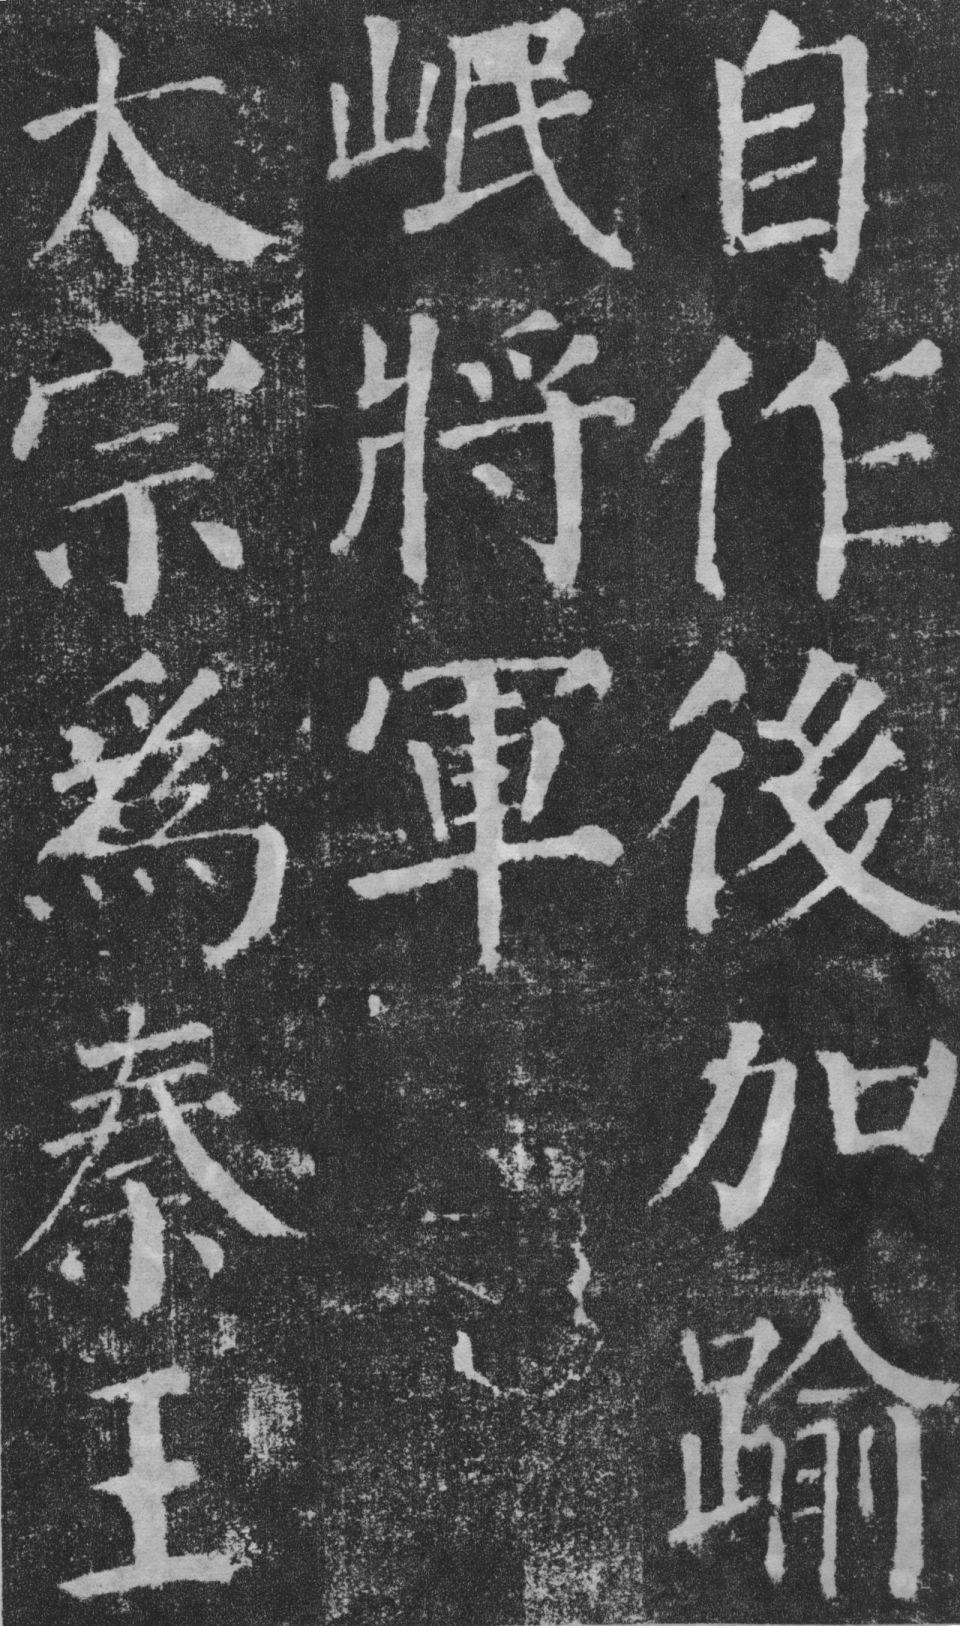 自作後加踰
岷將軍
太宗為秦王